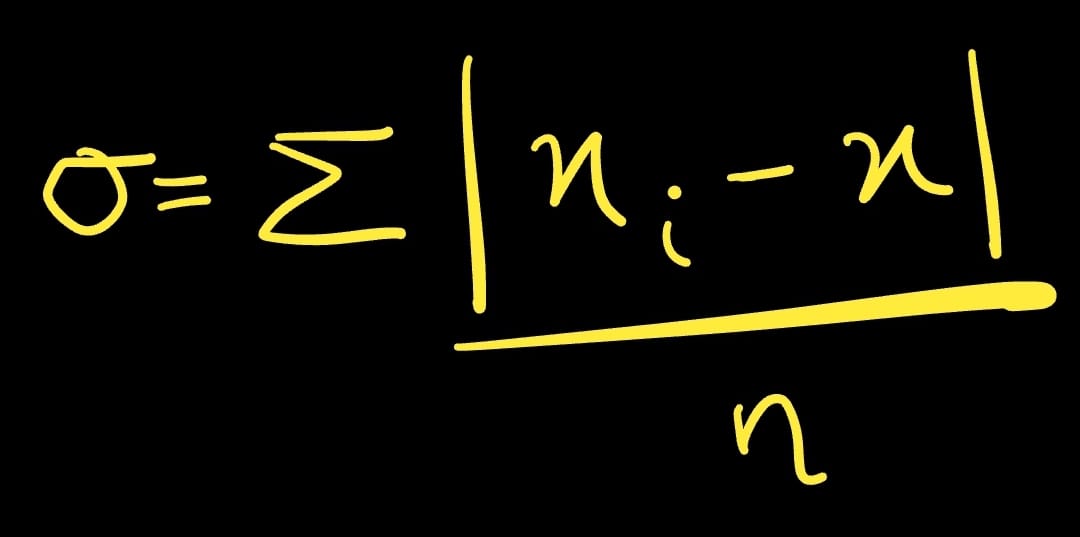 σ = Σ |x_i - x| / n